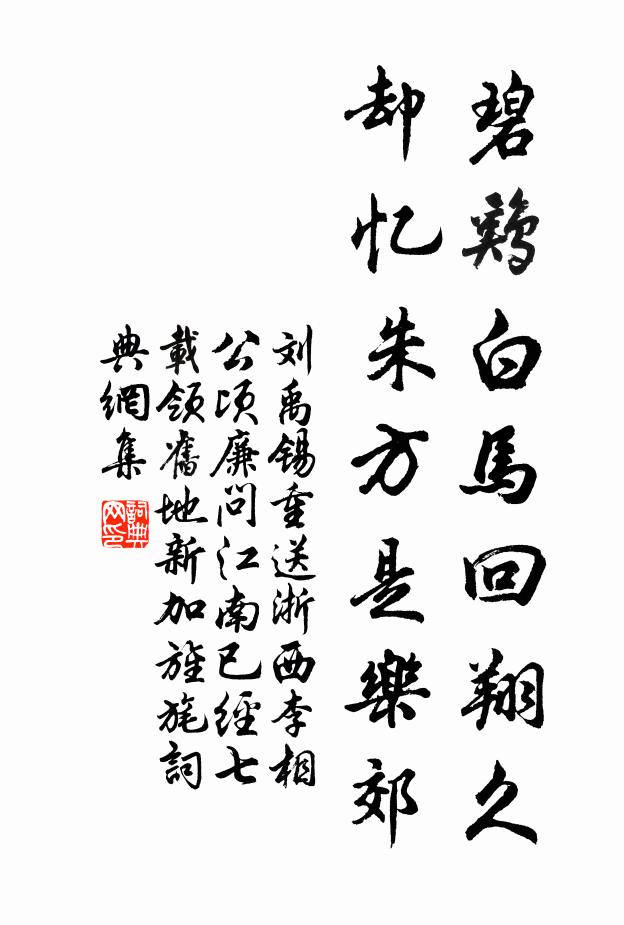 碧鷄白馬回翔久
却忆朱方是樂郊
刘禹锡重送浙西李相
公頃廉问江南已經七
載領舊地新加旌旄詞
典網集
詞典网印